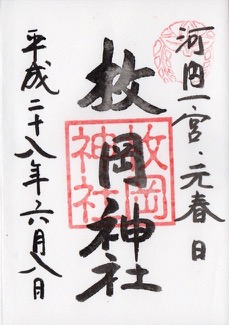 河内一宮・元春日
枚岡神社
枚岡
神社
平成二十八年六月八日